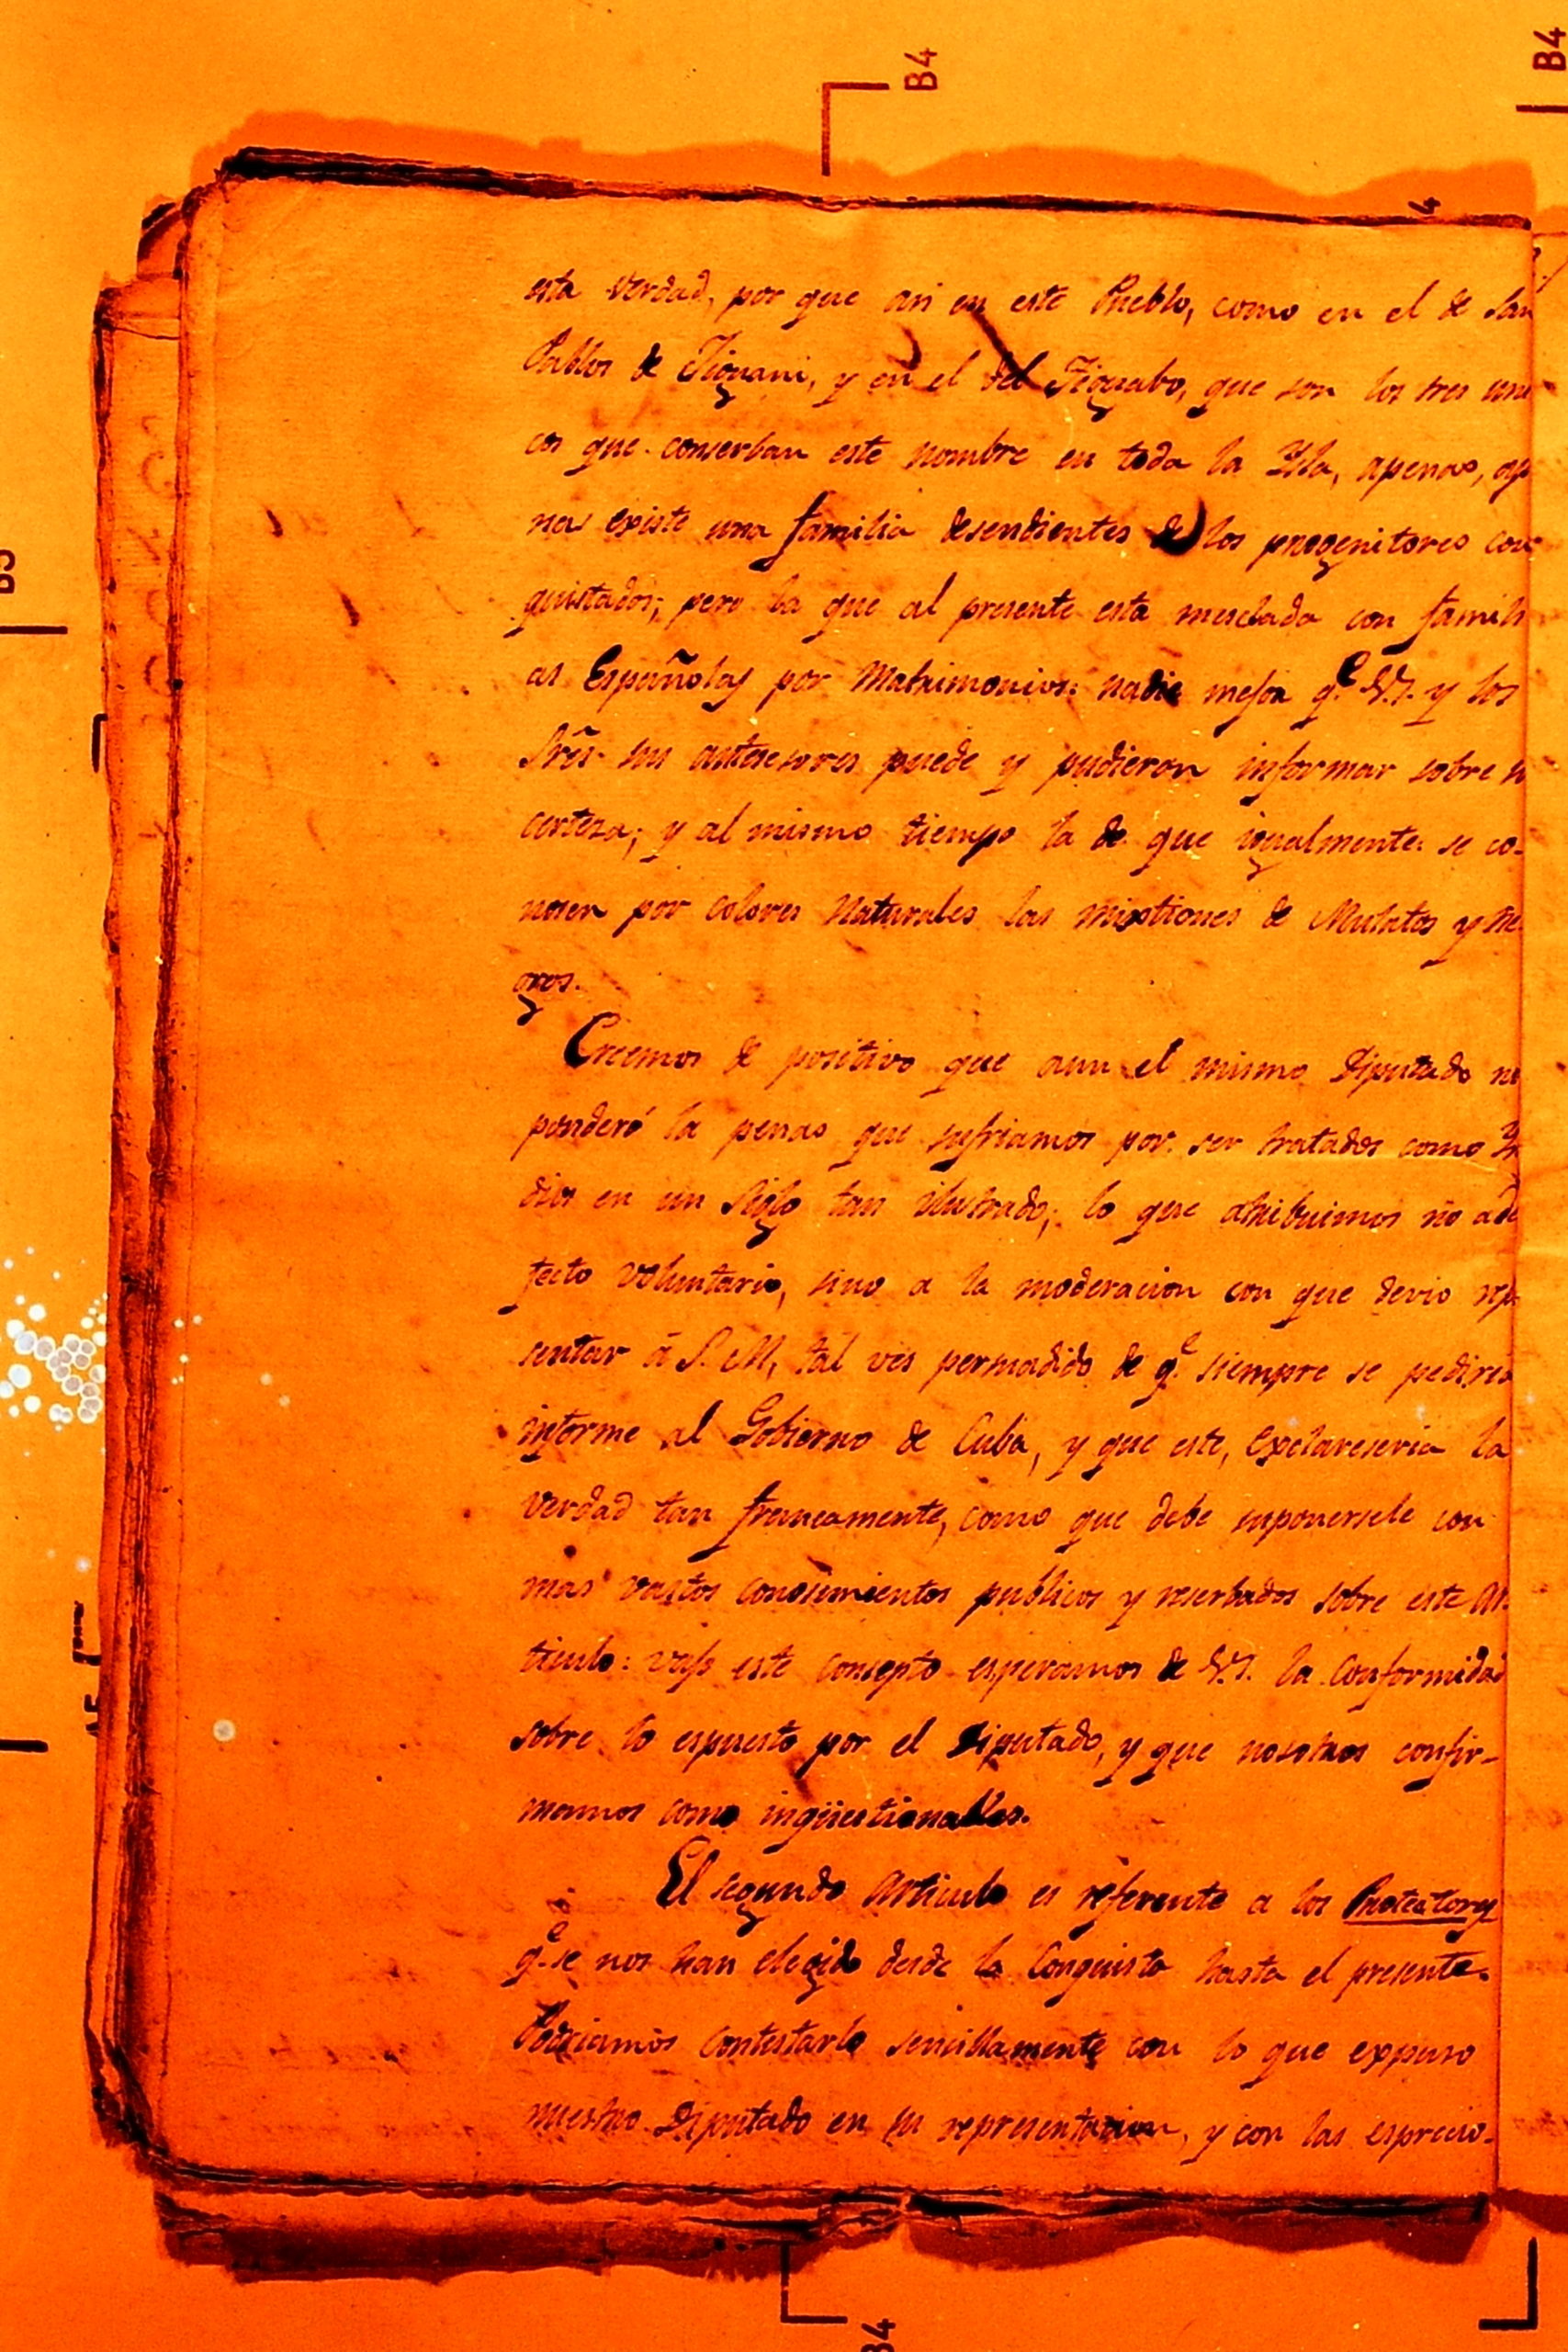 B4
B4
4
esta verdad, por que asi en este Pueblo, como en el de San
Pablos de Jiguani, y en el del Tiguabo, que son los tres uni
cos que conserban este nombre en toda la Ysla, apenas, ape
nas existe una familia desendientes de los progenitores con
quistados; pero la que al presente esta mesclada con famili
as Españolas por Matrimonios: nadie mejor q.e V.S. y los
Sres. sus antesesores puede y pudieron informar sobre su
certeza; y al mismo tiempo la de que igualmente se co-
nosen por colores naturales las mixtiones de Mulatos y Ne
gros.
Creemos de positivo que aun el mismo Diputado no
ponderó la penas que sufriamos por ser tratados como Yn
dios en un Siglo tan ilustrado; lo que atribuimos no a de
fecto voluntario, sino a la moderacion con que devio rep
sentar á S. M, tal ves persuadido de q.e siempre se pediria
informe al Gobierno de Cuba, y que este, exclareseria la
verdad tan francamente, como que debe suponersele con
mas vastos conosimientos publicos y reserbados sobre este ar-
ticulo: vajo este consepto esperamos de V.S. la conformidad
sobre lo espuesto por el Diputado, y que nosotros confir-
mamos como inqüestionables.
El segundo articulo es referente a los Protectores
q.e se nos han elegido desde la Conquista hasta el presente.
Podriamos contestarlo sencillamente con lo que expuso
nuestro Diputado en su representacion, y con las esprecio-
B4